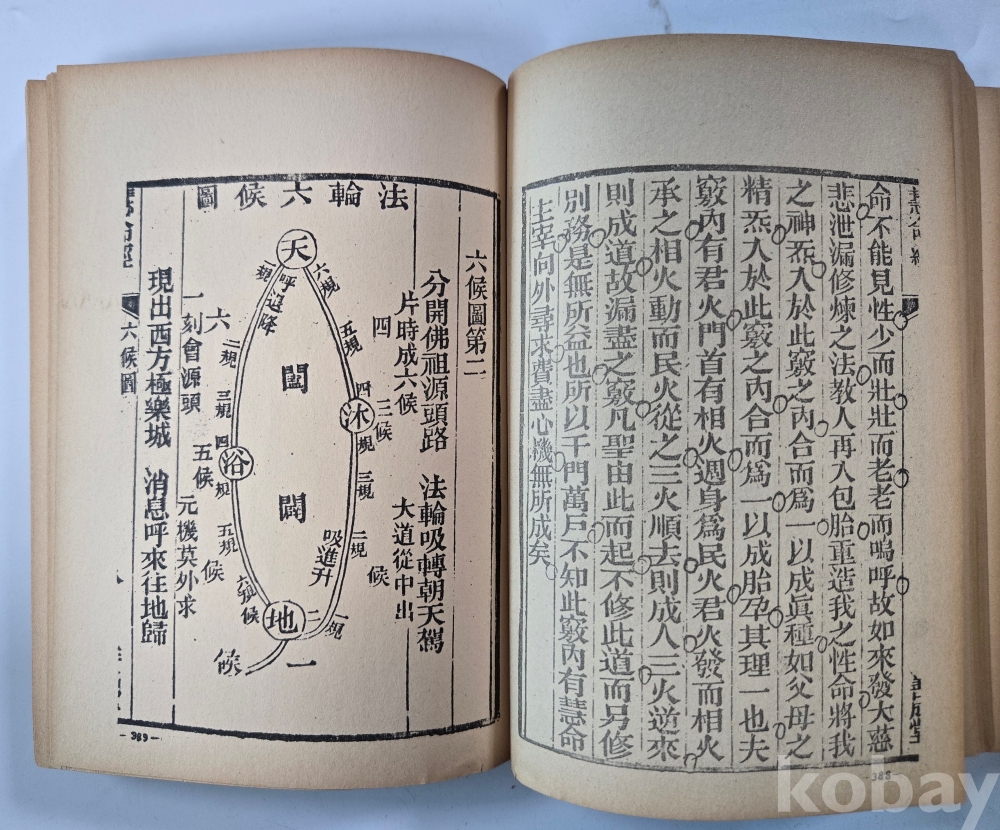 慧命經
命不能見性少而壯壯而老老而嗚呼故如來發大慈
悲泄漏修煉之法教人再入包胎重造我之性命將我
之神炁入於此竅之內合而爲一以成眞種如父母之
精炁入於此竅之內合而爲一以成胎孕其理一也夫
竅內有君火門首有相火週身爲民火君火發而相火
承之相火動而民火從之三火順去則成人三火逆來
則成道故漏盡之竅凡聖由此而起不修此道而另修
別務是無所益也所以千門萬戶不知此竅內有慧命
主宰向外尋求費盡心機無所成矣
-388-
法輪六候圖
六候圖第二
分開佛祖源頭路 法輪吸轉朝天駕
片時成六候 大道從中出
四
三候
天
六規
五規
四
沐
規
三規
二規
吸進升
一規
候
二
地
候
一
闔
闢
呼退降
一規
二規
三規
四
浴
規
五規
六規
候
六
五候
候
一刻會源頭 元機莫外求
現出西方極樂城 消息呼來往地歸
慧命經
六候圖
-389-
kobay